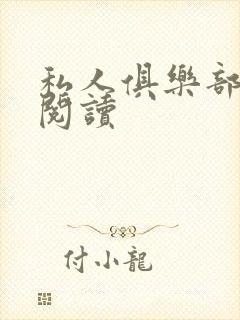 私人俱樂部
閱讀
付小龍